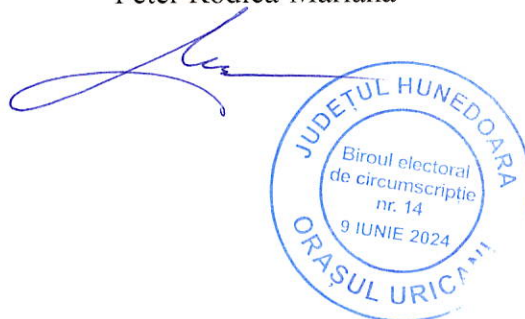 Peter Rodica-Mariana
JUDEȚUL HUNEDOARA
Biroul electoral
de circumscripție
nr. 14
9 IUNIE 2024
ORAȘUL URICANI